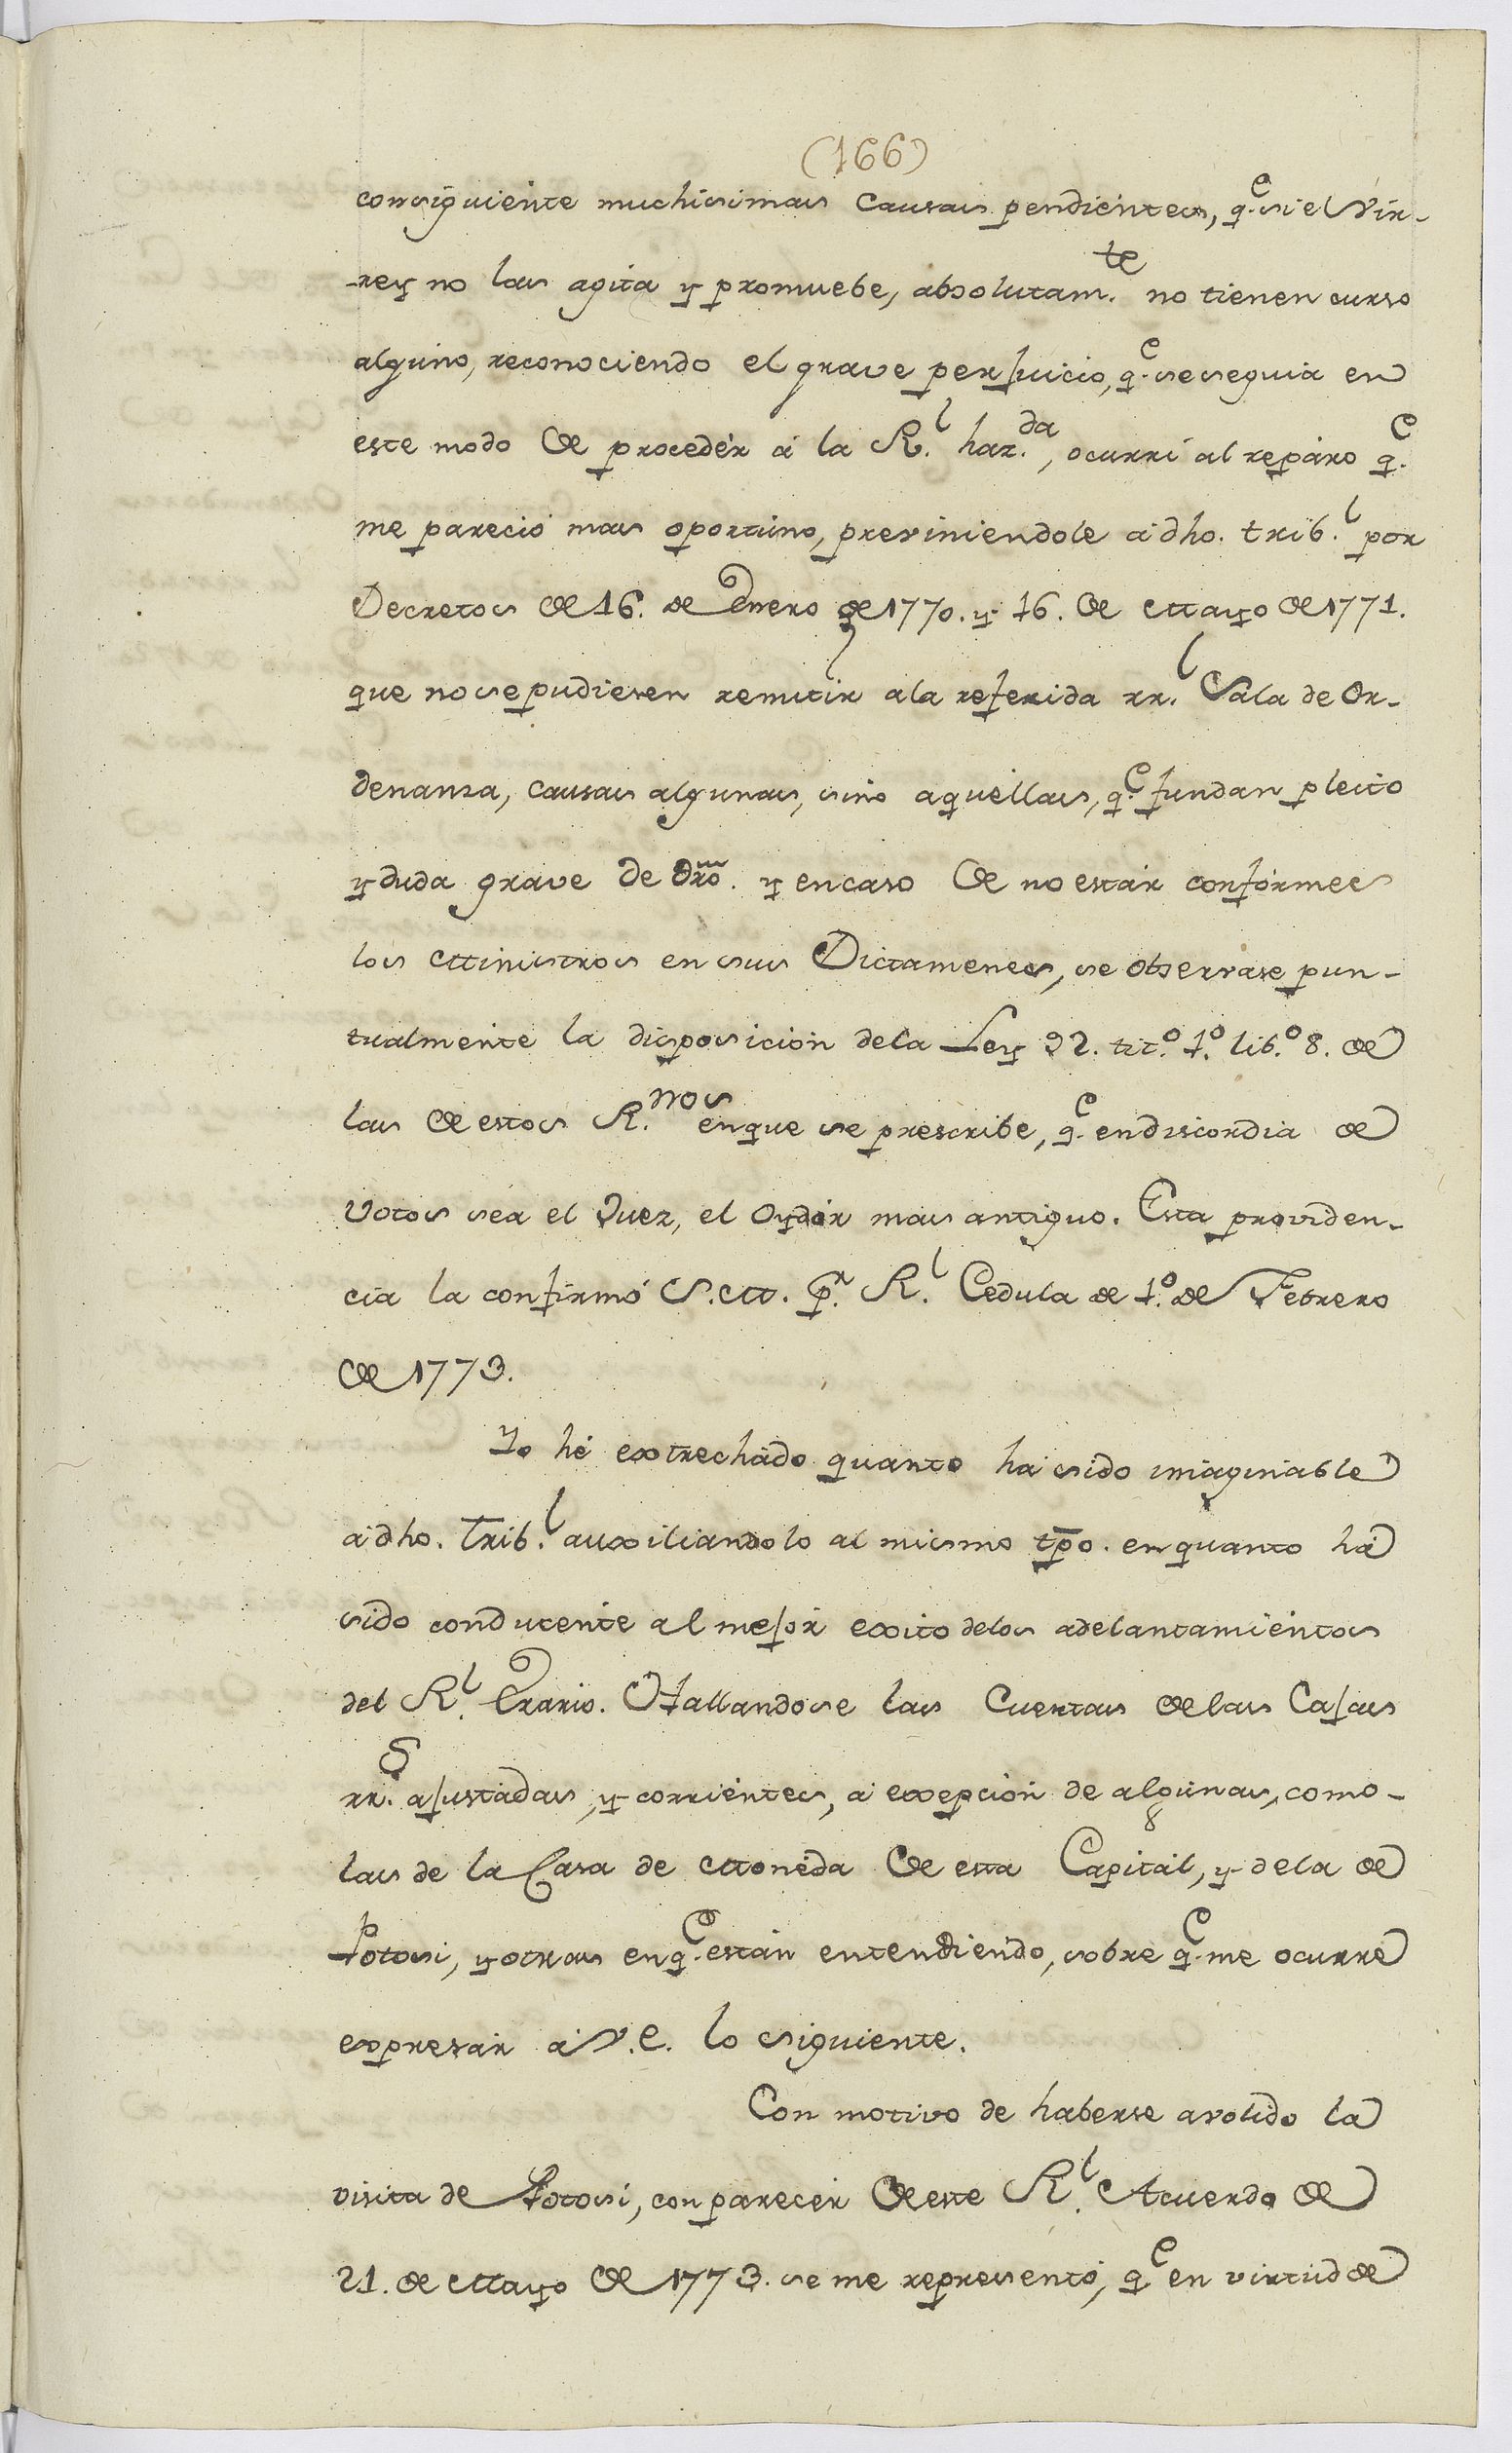 (166)
consiguiente muchisimas causas pendientes, q.e si el Vir-
rey no las agita y promuebe, absolutam.te no tienen curso
alguno, reconociendo el grave perjuicio, q.e se seguia en
este modo de procedér á la R.l haz.da, ocurrí al repáro q.e
me pareció mas oportuno, previniendole á dho. trib.l por
Decretos de 16. de Enero de 1770. y 16. de Mayo de 1771.
que no se pudiesen remitir a la referida rr.l Sala de Or-
denanza, causas algunas, sino aquellas, q.e fundan pleito
y duda grave de dro. y en caso de no estár confórmes
los Ministros en sus Dictamenes, se observase pun-
tualmente la disposición de la Ley 92. tit.o 1.o lib.o 8. de
las de estos R.nos en que se prescribe, q.e en discordia de
Votos sea el Juez, el Oydór mas antiguo. Esta providen-
cia la confirmó S.M. p.r R.l Cedula de 1.o de Febrero
de 1773.
Yo hé extrechádo quanto há sido imaginable
á dho. Trib.l auxiliandolo al mismo tpo. en quanto há
sido conducente al mejór exito de los adelantamientos
del R.l Erario. Hallandose las Cuentas de las Cajas
rr.s ajustadas, y corrientes, á exepción de algunas, como-
las de la Casa de Monéda de esta Capitál, y de la de
Potosi, y otras en q.e están entendiendo, sobre q.e me ocurre
expresár á V.E. lo siguiente.
Con motivo de haberse avolido la
visita de Potosí, con parecér de este R.l Acuerdo de
21. de Mayo de 1773. se me representó, q.e en virtud de